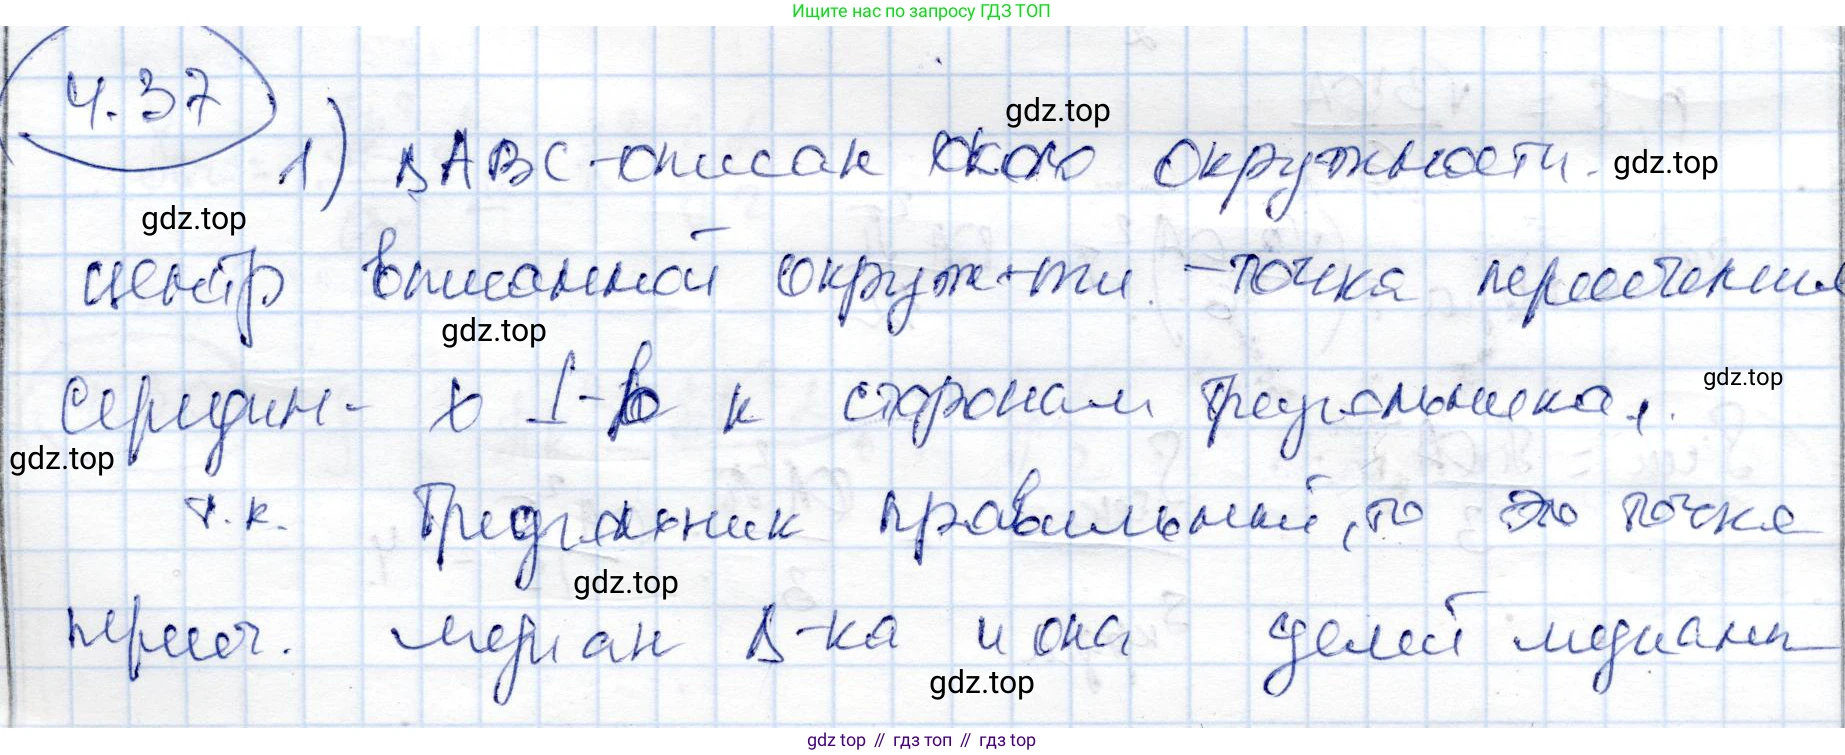 Ищите нас по запросу ГДЗ ТОП
4.37
gdz.top
1) ΔABC - описан около окружности.
gdz.top
gdz.top
центр вписанной окруж-ти - точка пересечения
gdz.top
середин-х ⊥-в к сторонам треугольника,
gdz.top
gdz.top
т.к. треугольник правильный, то это точка
gdz.top
пересеч. медиан Δ-ка и она делит медианы
gdz.top
gdz top // гдз топ // гдз top